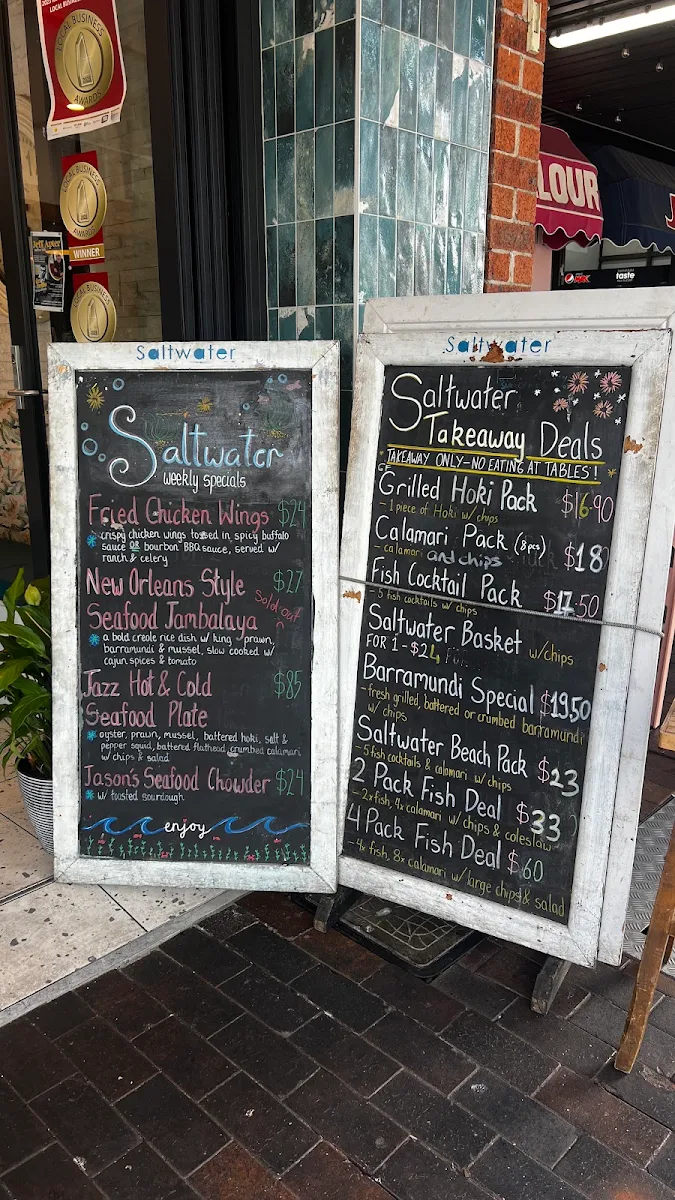 LOCAL BUSINESS
AWARDS
LOCAL BUSINESS
AWARDS
WINNER
LOCAL BUSINESS
AWARDS
LOUR
taste
Saltwater
Saltwater
weekly specials
Fried Chicken Wings $24
crispy chicken wings tossed in spicy buffalo
sauce OR bourbon BBQ sauce, served w/
ranch & celery
New Orleans Style $27
Seafood Jambalaya Sold out
a bold creole rice dish w/ king prawn,
barramundi & mussel, slow cooked w/
cajun spices & tomato
Jazz Hot & Cold $85
Seafood Plate
oyster, prawn, mussel, battered hoki, salt &
pepper squid, battered flathead, crumbed calamari
w/ chips & salad
Jason's Seafood Chowder $24
w/ toasted sourdough
enjoy
Saltwater
Saltwater
Takeaway Deals
TAKEAWAY ONLY-NO EATING AT TABLES!
GF
Grilled Hoki Pack $16.90
- 1 piece of Hoki w/ chips
Calamari Pack (8pcs) $18
- calamari and chips
Fish Cocktail Pack $17.50
- 5 fish cocktails w/ chips
Saltwater Basket w/chips
FOR 1-$24
Barramundi Special $19.50
- fresh grilled, battered or crumbed barramundi
w/ chips
Saltwater Beach Pack $23
- 5 fish cocktails & calamari w/ chips
2 Pack Fish Deal $33
- 2x fish, 4x calamari w/ chips & coleslaw
4 Pack Fish Deal $60
- 4x fish, 8x calamari w/ large chips & salad